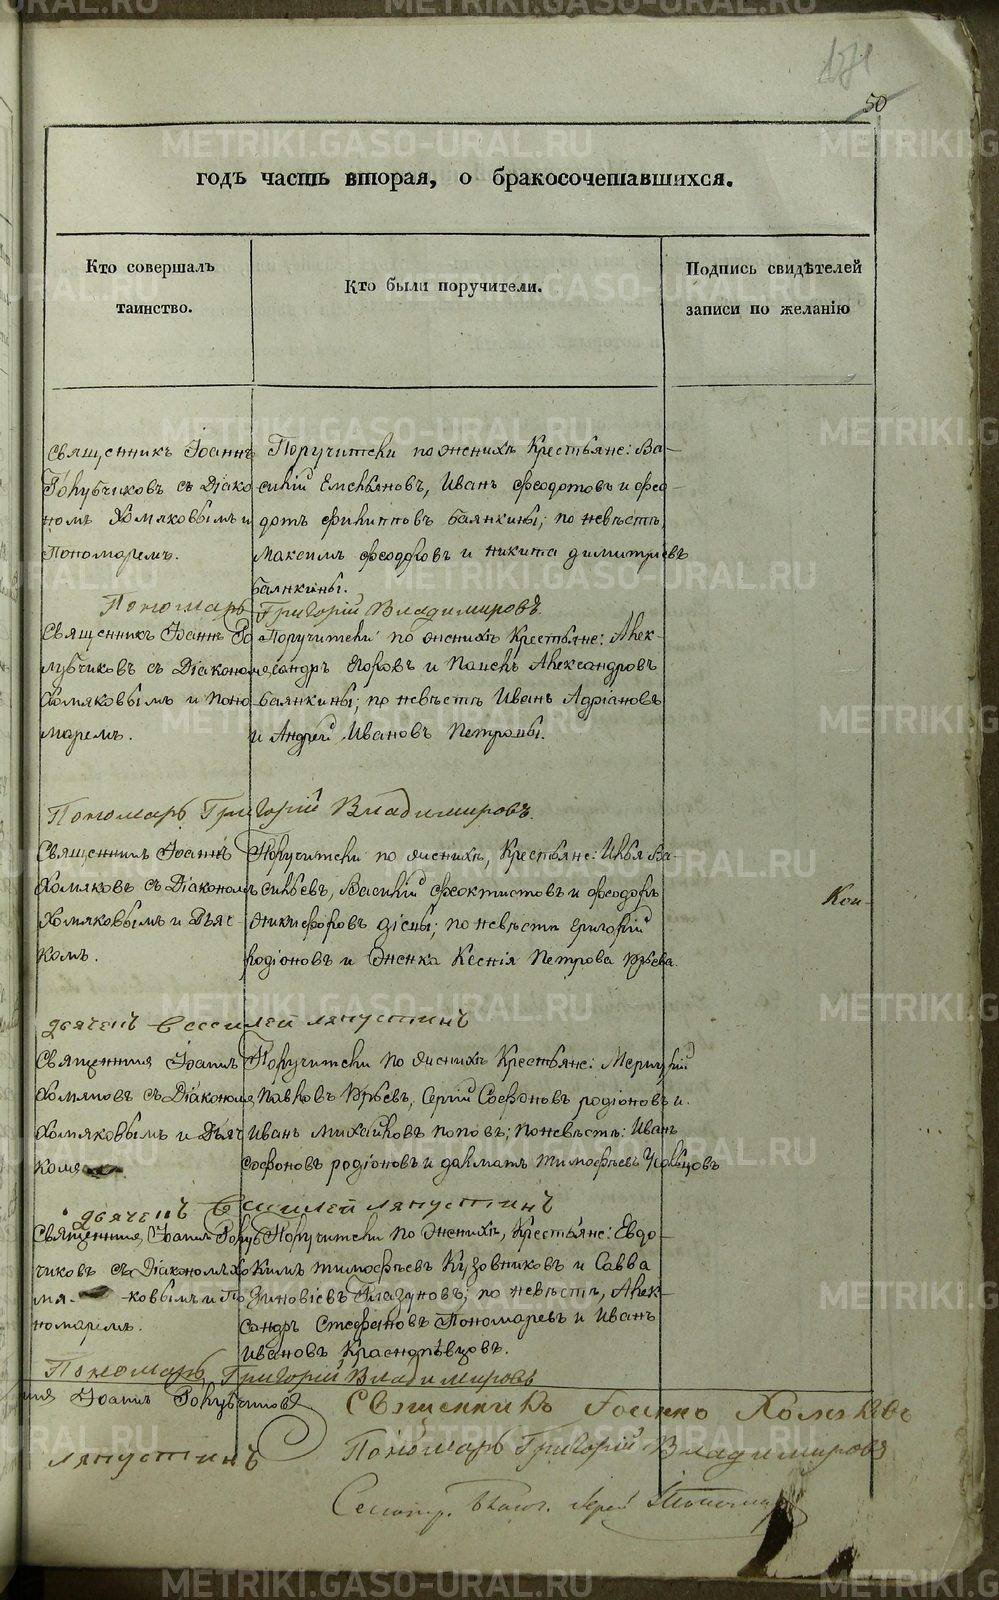 50
годъ часть вторая, о бракосочетавшихся.
Кто совершалъ
таинство.
Кто были поручители.
Подпись свидѣтелей
записи по желанію
Священникъ Іоаннъ
Голубчиковъ съ Діако
номъ Хомяковымъ и
Пономаремъ.
Поручители по женихѣ Крестьяне: Ва-
силій Емельяновъ, Иванъ Феодотовъ и Фео-
дотъ Филипповъ Балнкины; по невѣстѣ,
Максимъ Феодоровъ и Никита Димитріевъ
Балнкины.
Пономарь Григорій Владимировъ
Священникъ Іоаннъ Го
лубчиковъ съ Діакономъ
Хомяковымъ и Поно
маремъ.
Поручители по женихѣ Крестьяне: Алек-
сандръ Егоровъ и Паисей Александровъ
Балнкины; по невѣстѣ Иванъ Адріановъ
и Андрей Ивановъ Петровы.
Пономарь Григорій Владимировъ
Священникъ Іоаннъ
Хомяковъ съ Діакономъ
Хомяковымъ и Дьяч
комъ.
Поручители по женихѣ, Крестьяне: Илья Ва-
сильевъ, Василій Феоктистовъ и Феодоръ
Никифоровъ по невѣсти Григорій
Родіоновъ и Женка Ксенія Петрова Юрьева.
Кон-
дьячекъ Василей Ляпустинъ
Священникъ Іоаннъ
Хомяковъ съ Діакономъ
Хомяковымъ и Дьяч
комъ
Поручители по женихѣ Крестьяне: Меркурій
Павловъ Юрьевъ, Сергій Софоновъ Родіоновъ и
Иванъ Михайловъ Поповъ; по невѣстѣ: Иванъ
Софоновъ Родіоновъ и Далматъ Тимофѣевъ Усольцовъ
дьячекъ Василей Ляпустинъ
Священникъ Іоаннъ Голуб
чиковъ съ Діакономъ Хо
мя- ковымъ и По
номаремъ.
Поручители по Женихѣ, Крестьяне: Евдо-
кимъ Тимофѣевъ Кузовниковъ и Савва
Зиновіевъ Глазуновъ; по невѣстѣ, Алек-
сандръ Стефановъ Пономаревъ и Иванъ
Ивановъ Красноперовцовъ.
Пономарь Григорій Владимировъ
Іоаннъ Голубчиковъ
Священникъ Іоаннъ Хомяковъ
Ляпустинъ
Пономарь Григорій Владимировъ
METRIKI.GASO-URAL.RU